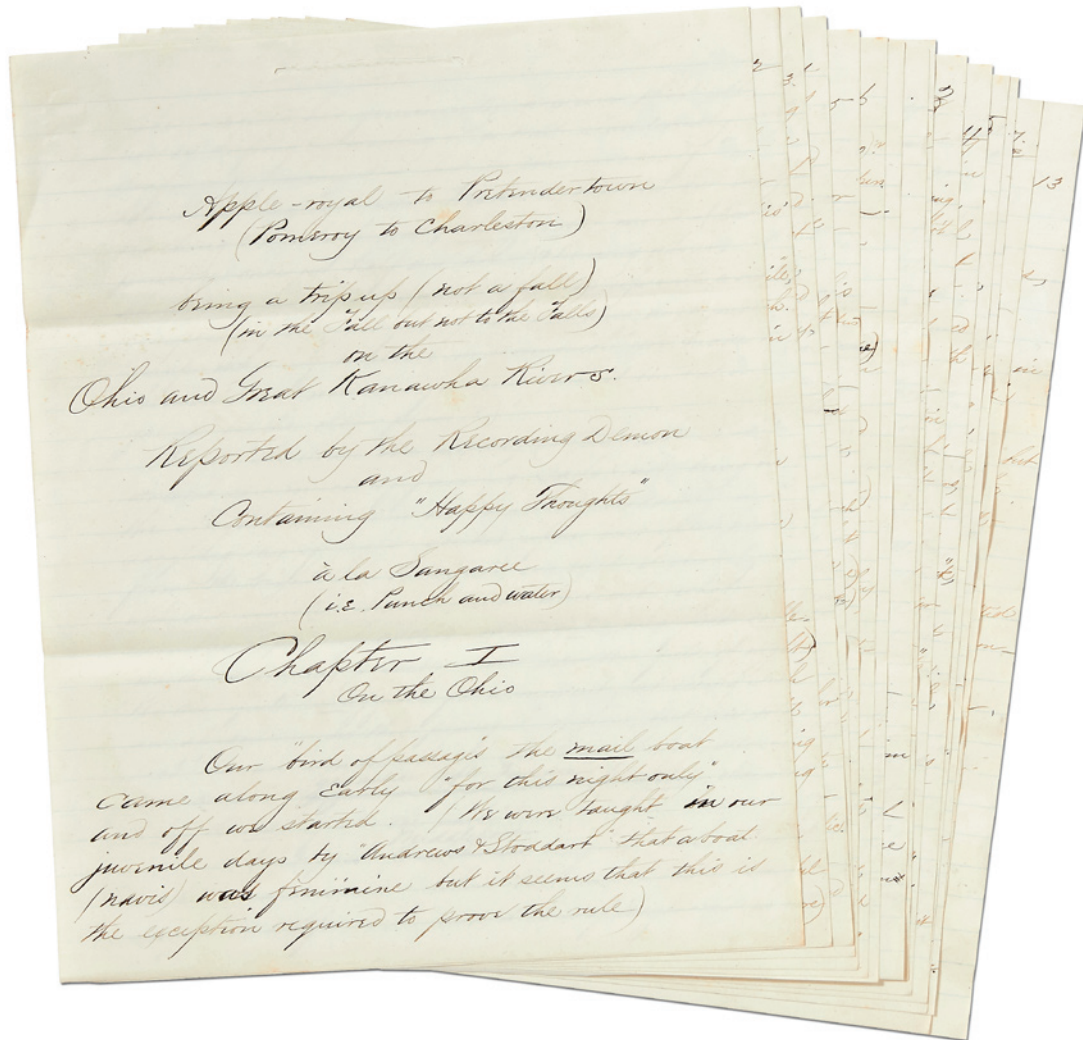 Apple-royal to Pretendertown
(Pomeroy to Charleston)
being a trip up (not a fall)
(in the Fall but not to the Falls)
on the
Ohio and Great Kanawha Rivers.
Reported by the Recording Demon
and
Containing "Happy Thoughts"
à la Sangaree
(i.e. Punch and water)
Chapter I
On the Ohio
Our "bird of passage" the mail boat
came along early "for this night only"
and off we started. (We were taught in our
juvenile days by "Andrews & Stoddart" that a boat
(navis) was feminine but it seems that this is
the exception required to prove the rule)
2
3
5
6
13